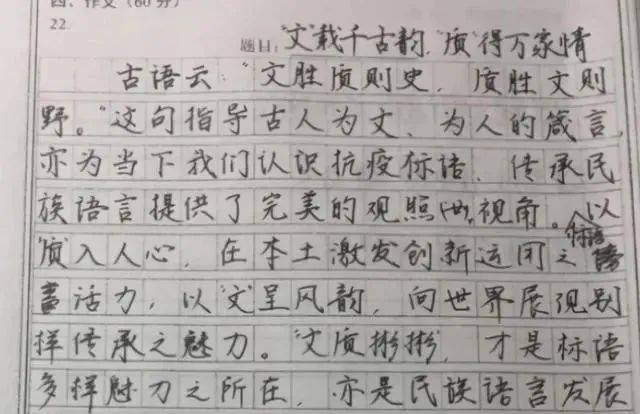 四、作文(60分)
22.
题目:"文"栽千古韵,"质"得万家情
古语云:"文胜质则史,质胜文则
野。"这句指导古人为文、为人的箴言,
亦为当下我们认识抗疫标语、传承民
族语言提供了完美的观照视角。以
"质"入人心,在本土激发创新运用之标语
活力,以"文"呈风韵,向世界展现别
样传承之魅力。"文质彬彬",才是标语
多样魅力之所在,亦是民族语言发展